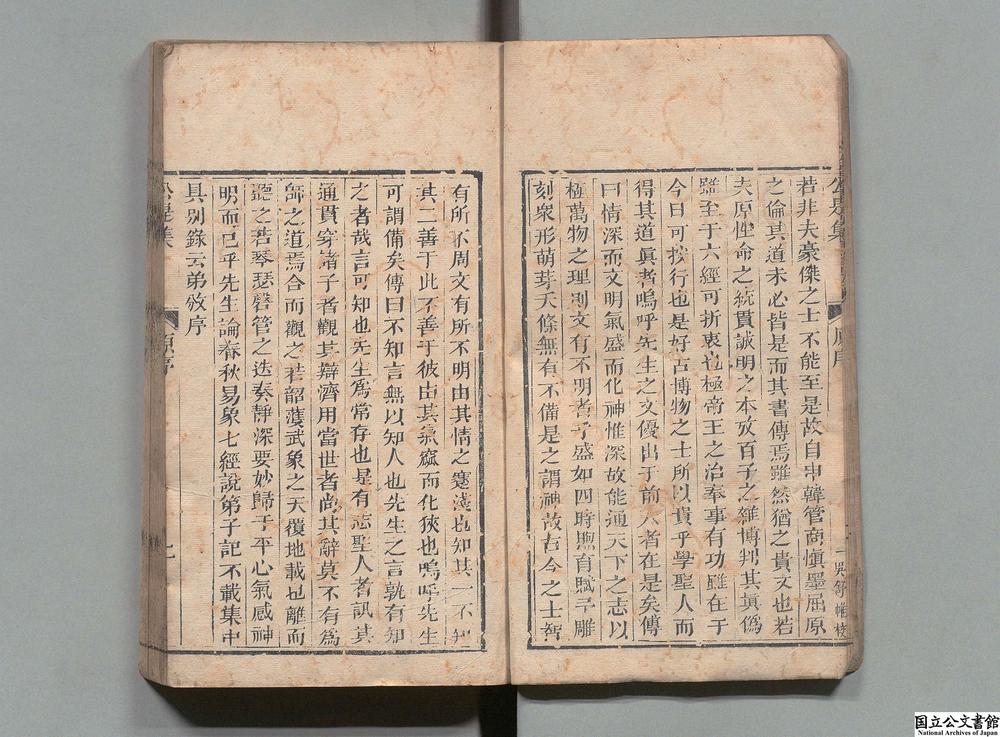 公是集
原序
吳舒帷校
若非夫豪傑之士不能至是故自申韓管商慎墨屈原
之倫其道未必皆是而其書傳焉雖然猶之貴文也若
夫原性命之統貫誠明之本攷百子之雜博判其真偽
雖至于六經可折衷也極帝王之治奉事有功雖在于
今日可按行也是好古博物之士所以貴乎學聖人而
得其道真者嗚呼先生之文優出于前人者在是矣傳
曰情深而文明氣盛而化神惟深故能通天下之志以
極萬物之理則文有不明者乎盛如四時煦育賦予雕
刻衆形萌芽夭條無有不備是之謂神故古今之士智
有所不周文有所不明由其情之蹇淺也知其一不知
其二善于此不善于彼由其氣窳而化狹也嗚呼先生
可謂備矣傳曰不知言無以知人也先生之言孰有知
之者哉言可知也先生為常存也是有志聖人者訊其
通貫穿諸子者觀其辯濟用當世者尚其辭莫不有為
師之道焉合而觀之若韶濩武象之天覆地載也離而
聽之若琴瑟磬管之迭奏靜深要妙歸于平心氣感神
明而已乎先生論春秋易象七經說弟子記不載集中
具別錄云弟攽序
公是集
原序
七
国立公文書館
National Archives of Japan